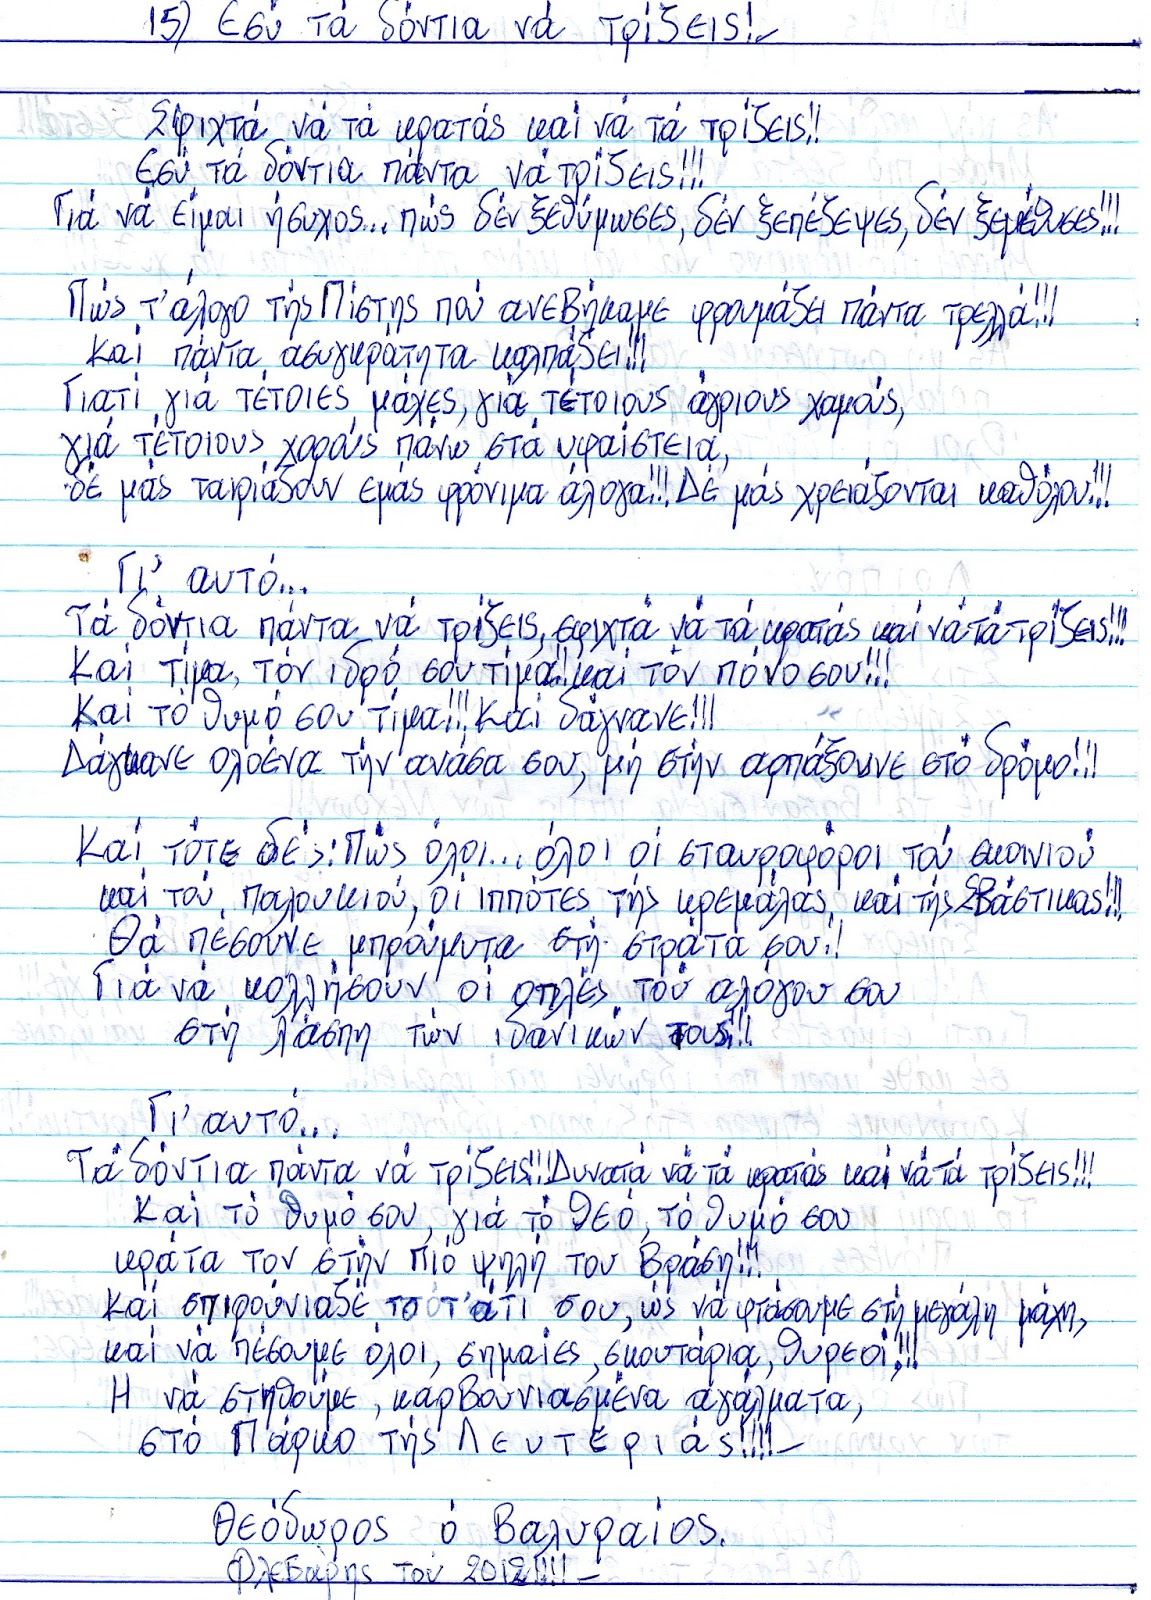 15) Εσύ τά δόντια νά τρίζεις!-
Σφιχτά νά τά κρατάς καί νά τά τρίζεις!!
Εσύ τά δόντια πάντα νά τρίζεις!!!
Γιά νά είμαι ήσυχος... πώς δέν ξεθύμωσες, δέν ξεπέζεψες, δέν ξεμέθυσες!!!
Πώς τ' άλογο τής Πίστης πού ανεβήκαμε φρουμάζει πάντα τρελλά!!!
Καί πάντα ασυγκράτητα καλπάζει!!!
Γιατί γιά τέτοιες μάχες, γιά τέτοιους άγριους χαμούς,
γιά τέτοιους χορούς πάνω στά υφαίστεια,
δέ μάς ταιριάζουν εμάς φρόνιμα άλογα!!! Δέ μάς χρειάζονται καθόλου!!!
Γι' αυτό...
Τά δόντια πάντα νά τρίζεις, σφιχτά νά τά κρατάς καί νά τά τρίζεις!!!
Καί τίμα, τόν ιδρό σου τίμα!! καί τόν πόνο σου!!!
Καί τό θυμό σου τίμα!!! Καί δάγκανε!!!
Δάγκανε ολοένα τήν ανάσα σου, μή στήν αρπάξουνε στό δρόμο!!!
Καί τότε δές: Πώς όλοι... όλοι οί σταυροφόροι τού σκοινιού
καί τού παλουκιού, οί ιππότες τής κρεμάλας καί τής Σβάστικας!!!
Θά πέσουνε μπρούμυτα στή στράτα σου!!
Γιά νά κολλήσουν οί οπλές τού αλόγου σου
στή λάσπη τών ιδανικών τους!!!
Γι' αυτό...
Τά δόντια πάντα νά τρίζεις!!! Δυνατά νά τά κρατάς καί νά τά τρίζεις!!!
Καί τό θυμό σου, γιά τό θεό, τό θυμό σου
κράτα τον στήν πιό ψηλή του βράση!!!
Καί σπιρούνιαζε τό τ' άτι σου, ώς νά φτάσουμε στή μεγάλη μάχη,
καί νά πέσουμε όλοι, σημαίες, σκουτάρια, θυρεοί!!!
Η νά στηθούμε, καρβουνιασμένα αγάλματα,
στό Πάρκο τής Λευτεριάς!!!!-
Θεόδωρος ό Βαλυραίος.
Φλεβάρης τού 2012!!!!-